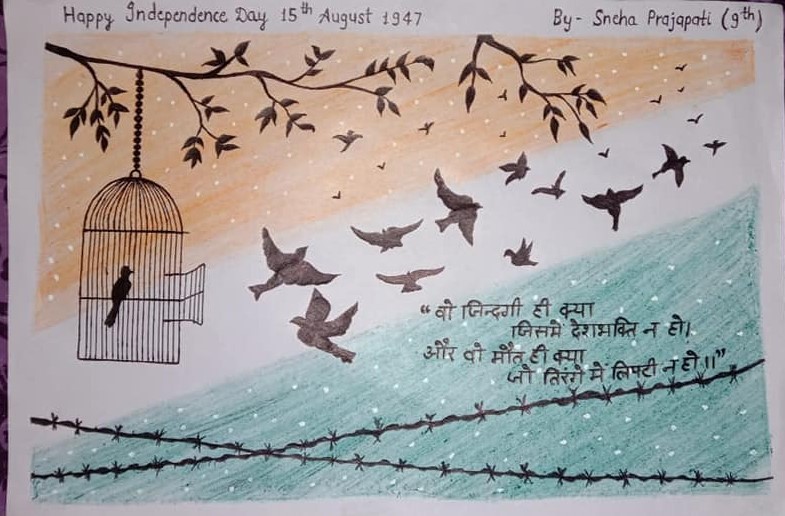 Happy Independence Day 15th August 1947
By- Sneha Prajapati (9th)
“वो जिन्दगी ही क्या
जिसमे देशभक्ति न हो।
और वो मौत ही क्या
जो तिरंगे मे लिपटी न हो॥”